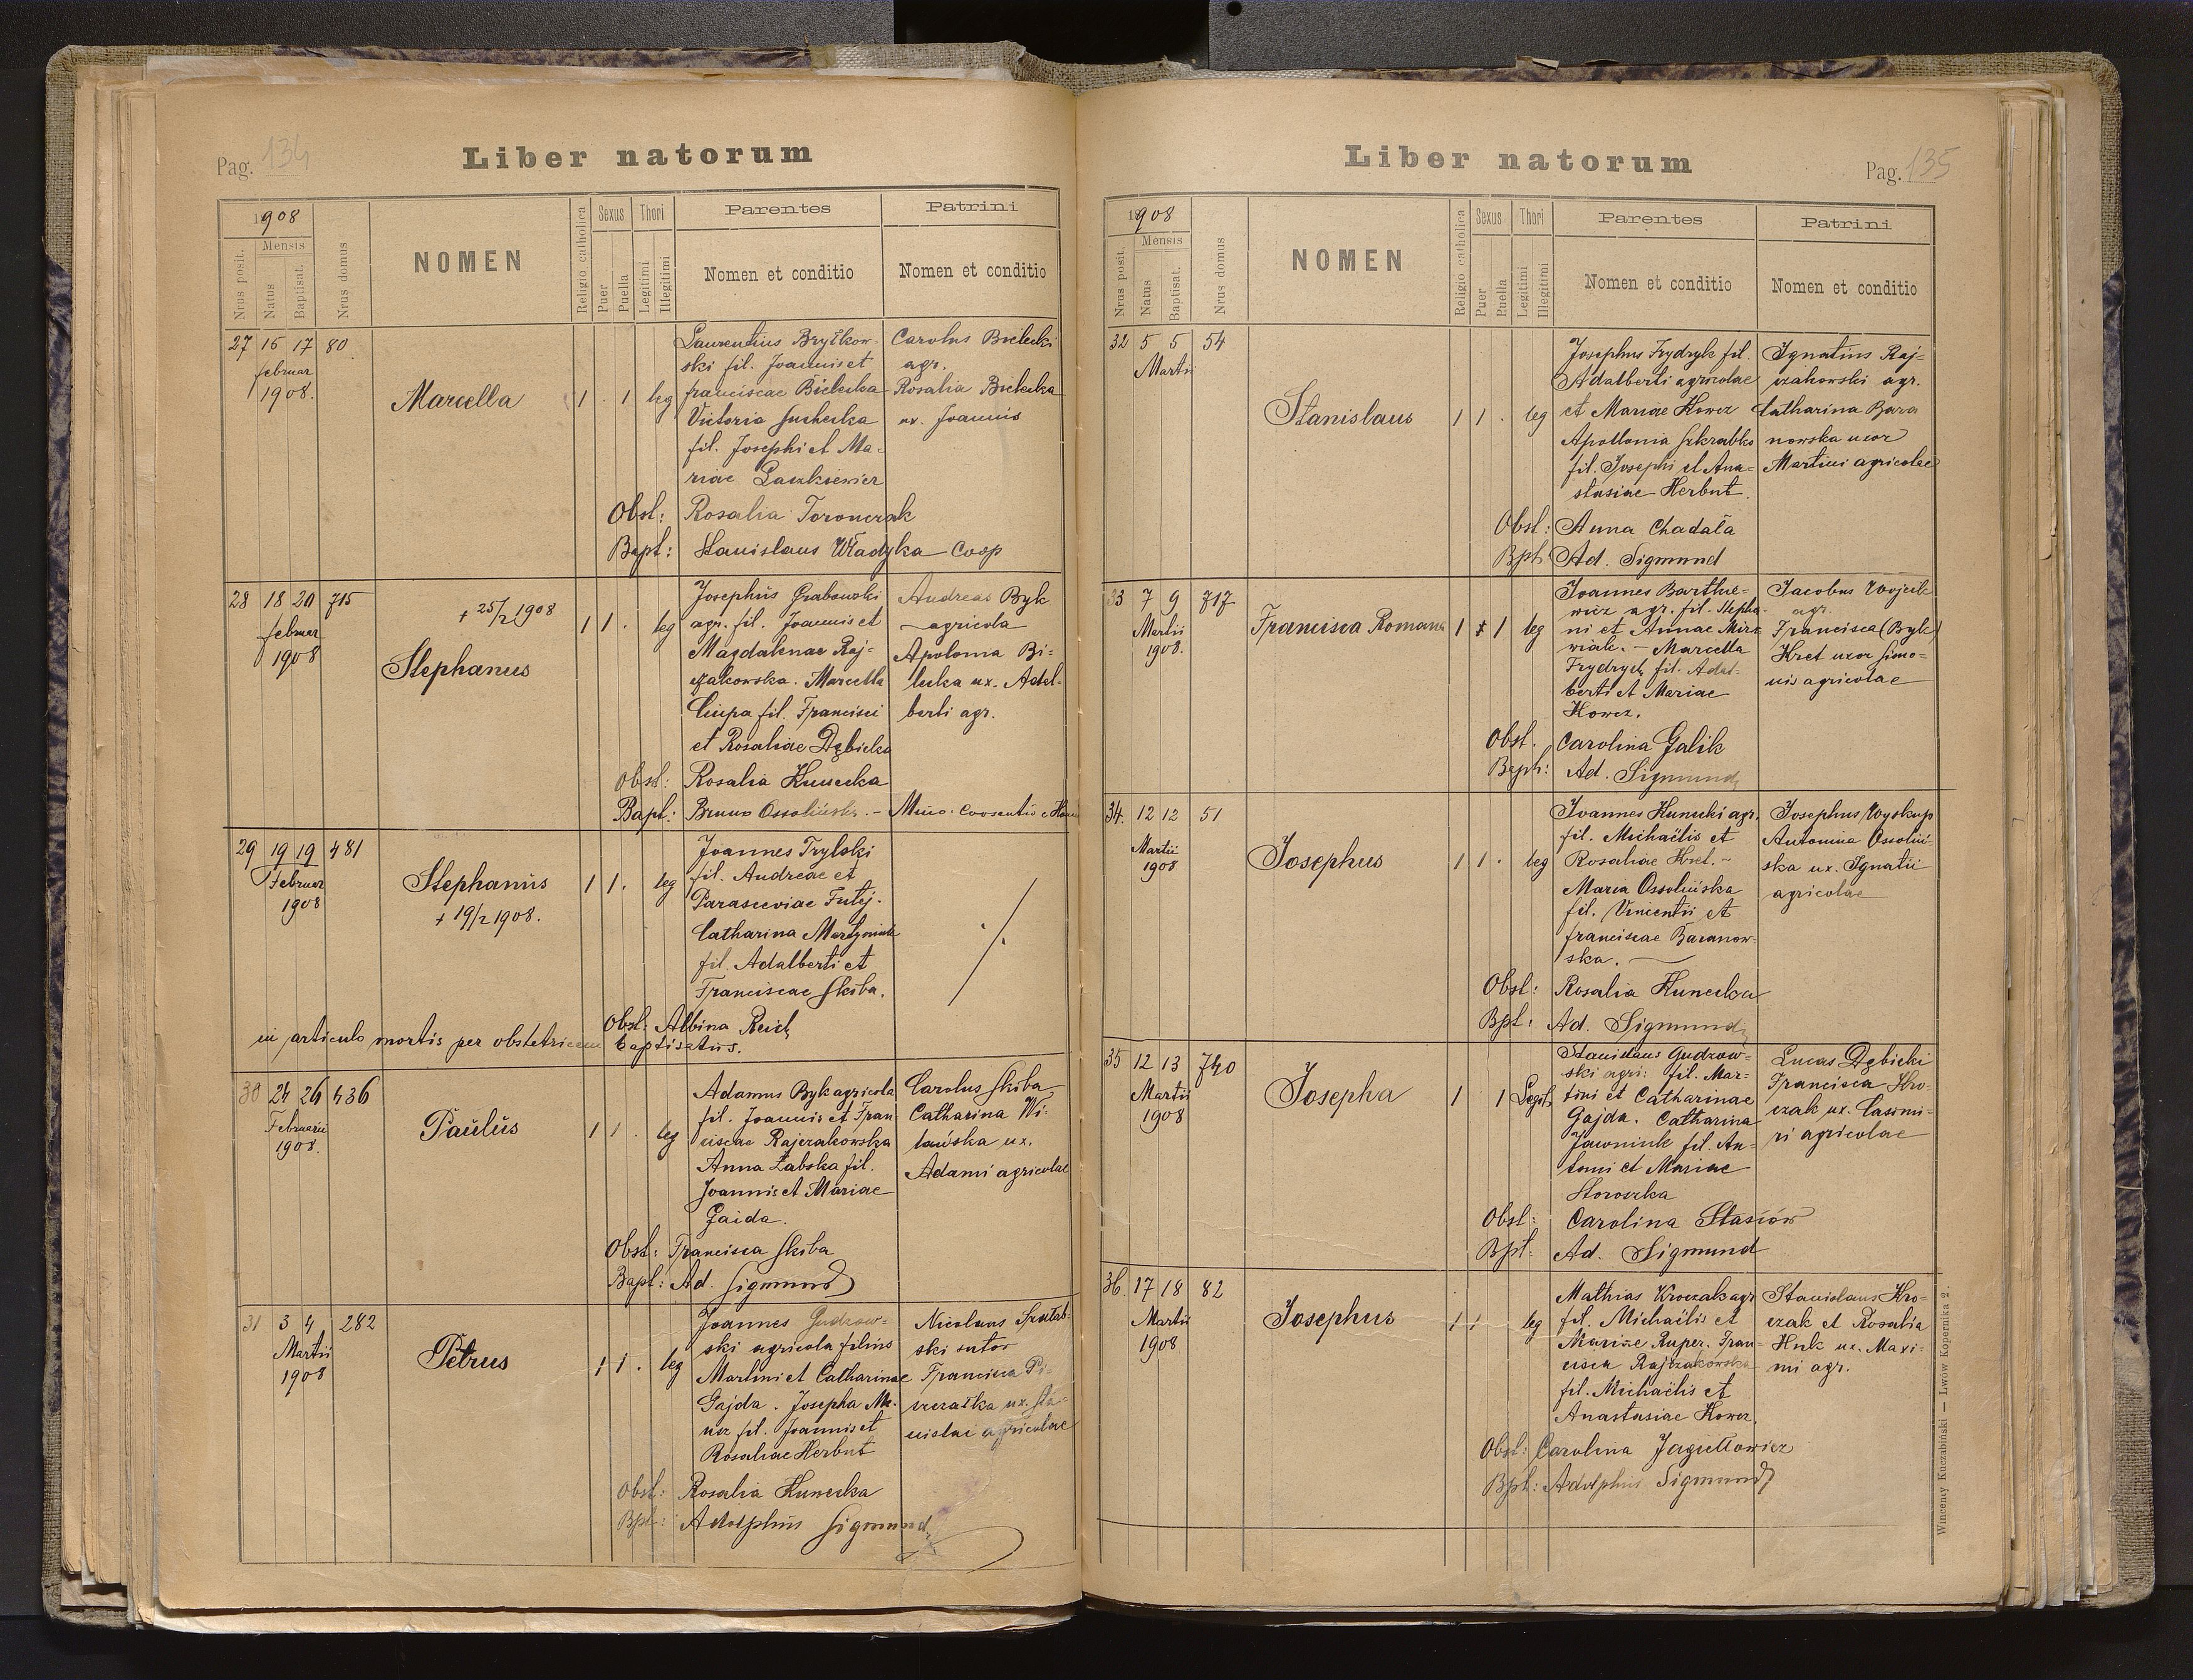 Pag. 134
Liber natorum
1908
Nrus posit.
Mensis
Natus
Baptisat.
Nrus domus
NOMEN
Religio catholica
Sexus
Puer
Puella
Thori
Legitimi
Illegitimi
Parentes
Nomen et conditio
Patrini
Nomen et conditio
27 16 17 80
februar
1908.
Marcella
1 . 1 leg
Laurentius Bryżkow-
ski fil. Joannis et
franciscae Bielecka
Victoria Suchecka
fil. Josephi et Ma-
riae Laszkiewicz
Carolus Bielecki
agr.
Rosalia Bielecka
ux. Joannis
Obst: Rosalia Toronczak
Bapt: Stanislaus Władyka Coop
28 18 20 715
februar
1908
+ 25/2 1908
Stephanus
1 1 . leg
Josephus Grabowski
agr. fil. Joannis et
Magdalenae Raj-
czakowska. Marcella
Ciupa fil. Francisci
et Rosaliae Dębicka
Andreas Byk
agricola
Apolonia Bi-
lecka ux. Adal-
berti agr.
Obst: Rosalia Kunecka
Bapt: Bruno Ossoliński. -
29 19 19 481
Februar
1908
Stephanus
+ 19/2 1908.
1 1 . leg
Joannes Trylski
fil. Andreae et
Parasceviae Futij.
Catharina
fil. Adalberti et
Franciscae Skiba.
Obst. Albina Reich
in articulo mortis per obstetricem baptisatus.
30 24 26 436
Februarii
1908.
Paulus
1 1 . leg
Adamus Byk agricola
fil. Joannis et Fran
ciscae Rajczakowska
Anna Żabska fil.
Joannis et Mariae
Gaida.
Carolus Skiba
Catharina Wi-
lańska ux.
Adami agricolae
Obst: Francisca Skiba
Bapt: Ad. Sigmund
31 3 4 282
Martii
1908
Petrus
1 1 . leg
Joannes Gudzow-
ski agricola filius
Martini et Catharinae
Gajda. Josepha
fil. Joannis et
Rosaliae Herbut
Nicolaus
ski sutor
Francisca Pi-
ux. Sta-
nislai agricolae
Obst: Rosalia Kunecka
Bpt: Adolphus Sigmund
Liber natorum
Pag. 135
1908
Nrus posit.
Mensis
Natus
Baptisat.
Nrus domus
NOMEN
Religio catholica
Sexus
Puer
Puella
Thori
Legitimi
Illegitimi
Parentes
Nomen et conditio
Patrini
Nomen et conditio
32 5 5 54
Martii
Stanislaus
1 1 . leg
Josephus Frydryk fil.
Adalberti agricolae
et Mariae Kowcz
Apollonia Szkrabko
fil. Josephi et Ana-
stasiae Herbut.
Ignatius Raj-
czakowski agr.
Catharina Bara
nowska uxor
Martini agricolae
Obst: Anna Chadała
Bpt. Ad. Sigmund
33 7 9 717
Martii
1908.
Francisca Romana
1 1 leg
Joannes Barthe-
wicz agr. fil. Stepha-
ni et Annae Mirz
wiak. - Marcella
Frydrych fil. Adal-
berti et Mariae
Kowcz.
Jacobus Wojcik
agr.
Francisca (Byk)
Kret uxor Simo-
nis agricolae
Obst. Carolina Galik
Bapt: Ad. Sigmund
34. 12 12 51
Martii
1908
Josephus
1 1 . leg
Joannes Kunecki agr.
fil. Michaëlis et
Rosaliae Kret. -
Maria Ossolińska
fil. Vincentii et
franciscae Baranow-
ska.
Josephus Wyskup
Antonina Ossoliń-
ska ux. Ignatii
agricolae
Obst: Rosalia Kunecka
Bpt: Ad. Sigmund
35 12 13 740
Martii
1908
Josepha
1 1 Legit.
Stanislaus Gudzow-
ski agri. fil. Mar-
tini et Catharinae
Gajda. Catharina
Jawniuk fil. An-
toni et Mariae
Storoszka
Lucas Dębicki
Francisca Kro-
czak ux. Casimi-
ri agricolae
Obst: Carolina Stasiów
Bpt: Ad. Sigmund
36. 17 18 82
Martii
1908
Josephus
1 1 leg
Mathias Kroczak agr
fil. Michaëlis et
Mariae Ruper. Fran-
cisca Rajczakowska
fil. Michaëlis et
Anastasiae Kowcz.
Stanislaus Kro-
czak et Rosalia
Huk ux. Maxi-
mi agr.
Obst: Carolina Jagiełłowicz
Bpt: Adolphus Sigmund
Wincenty Kuczabiński — Lwów Kopernika 2.